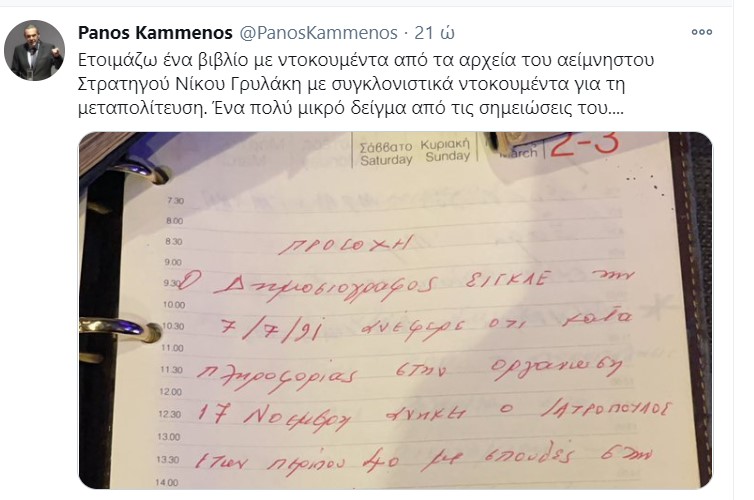 Panos Kammenos @PanosKammenos · 21 ώ
Ετοιμάζω ένα βιβλίο με ντοκουμέντα από τα αρχεία του αείμνηστου
Στρατηγού Νίκου Γρυλάκη με συγκλονιστικά ντοκουμέντα για τη
μεταπολίτευση. Ένα πολύ μικρό δείγμα από τις σημειώσεις του....
Σάββατο Κυριακή
Saturday Sunday
March
2-3
7.30
8.00
8.30
ΠΡΟΣΟΧΗ
9.00
9.30
Ο Δημοσιογράφος ΣΙΓΚΛΕ την
10.00
10.30
7/7/91 ανεφερε οτι κατα
11.00
11.30
πληροφορίας στην οργανωση
12.00
12.30
17 Νοεμβρη ανηκει ο ΙΑΤΡΟΠΟΥΛΟΣ
13.00
13.30
ετων περίπου 40 με σπουδές στην
14.00